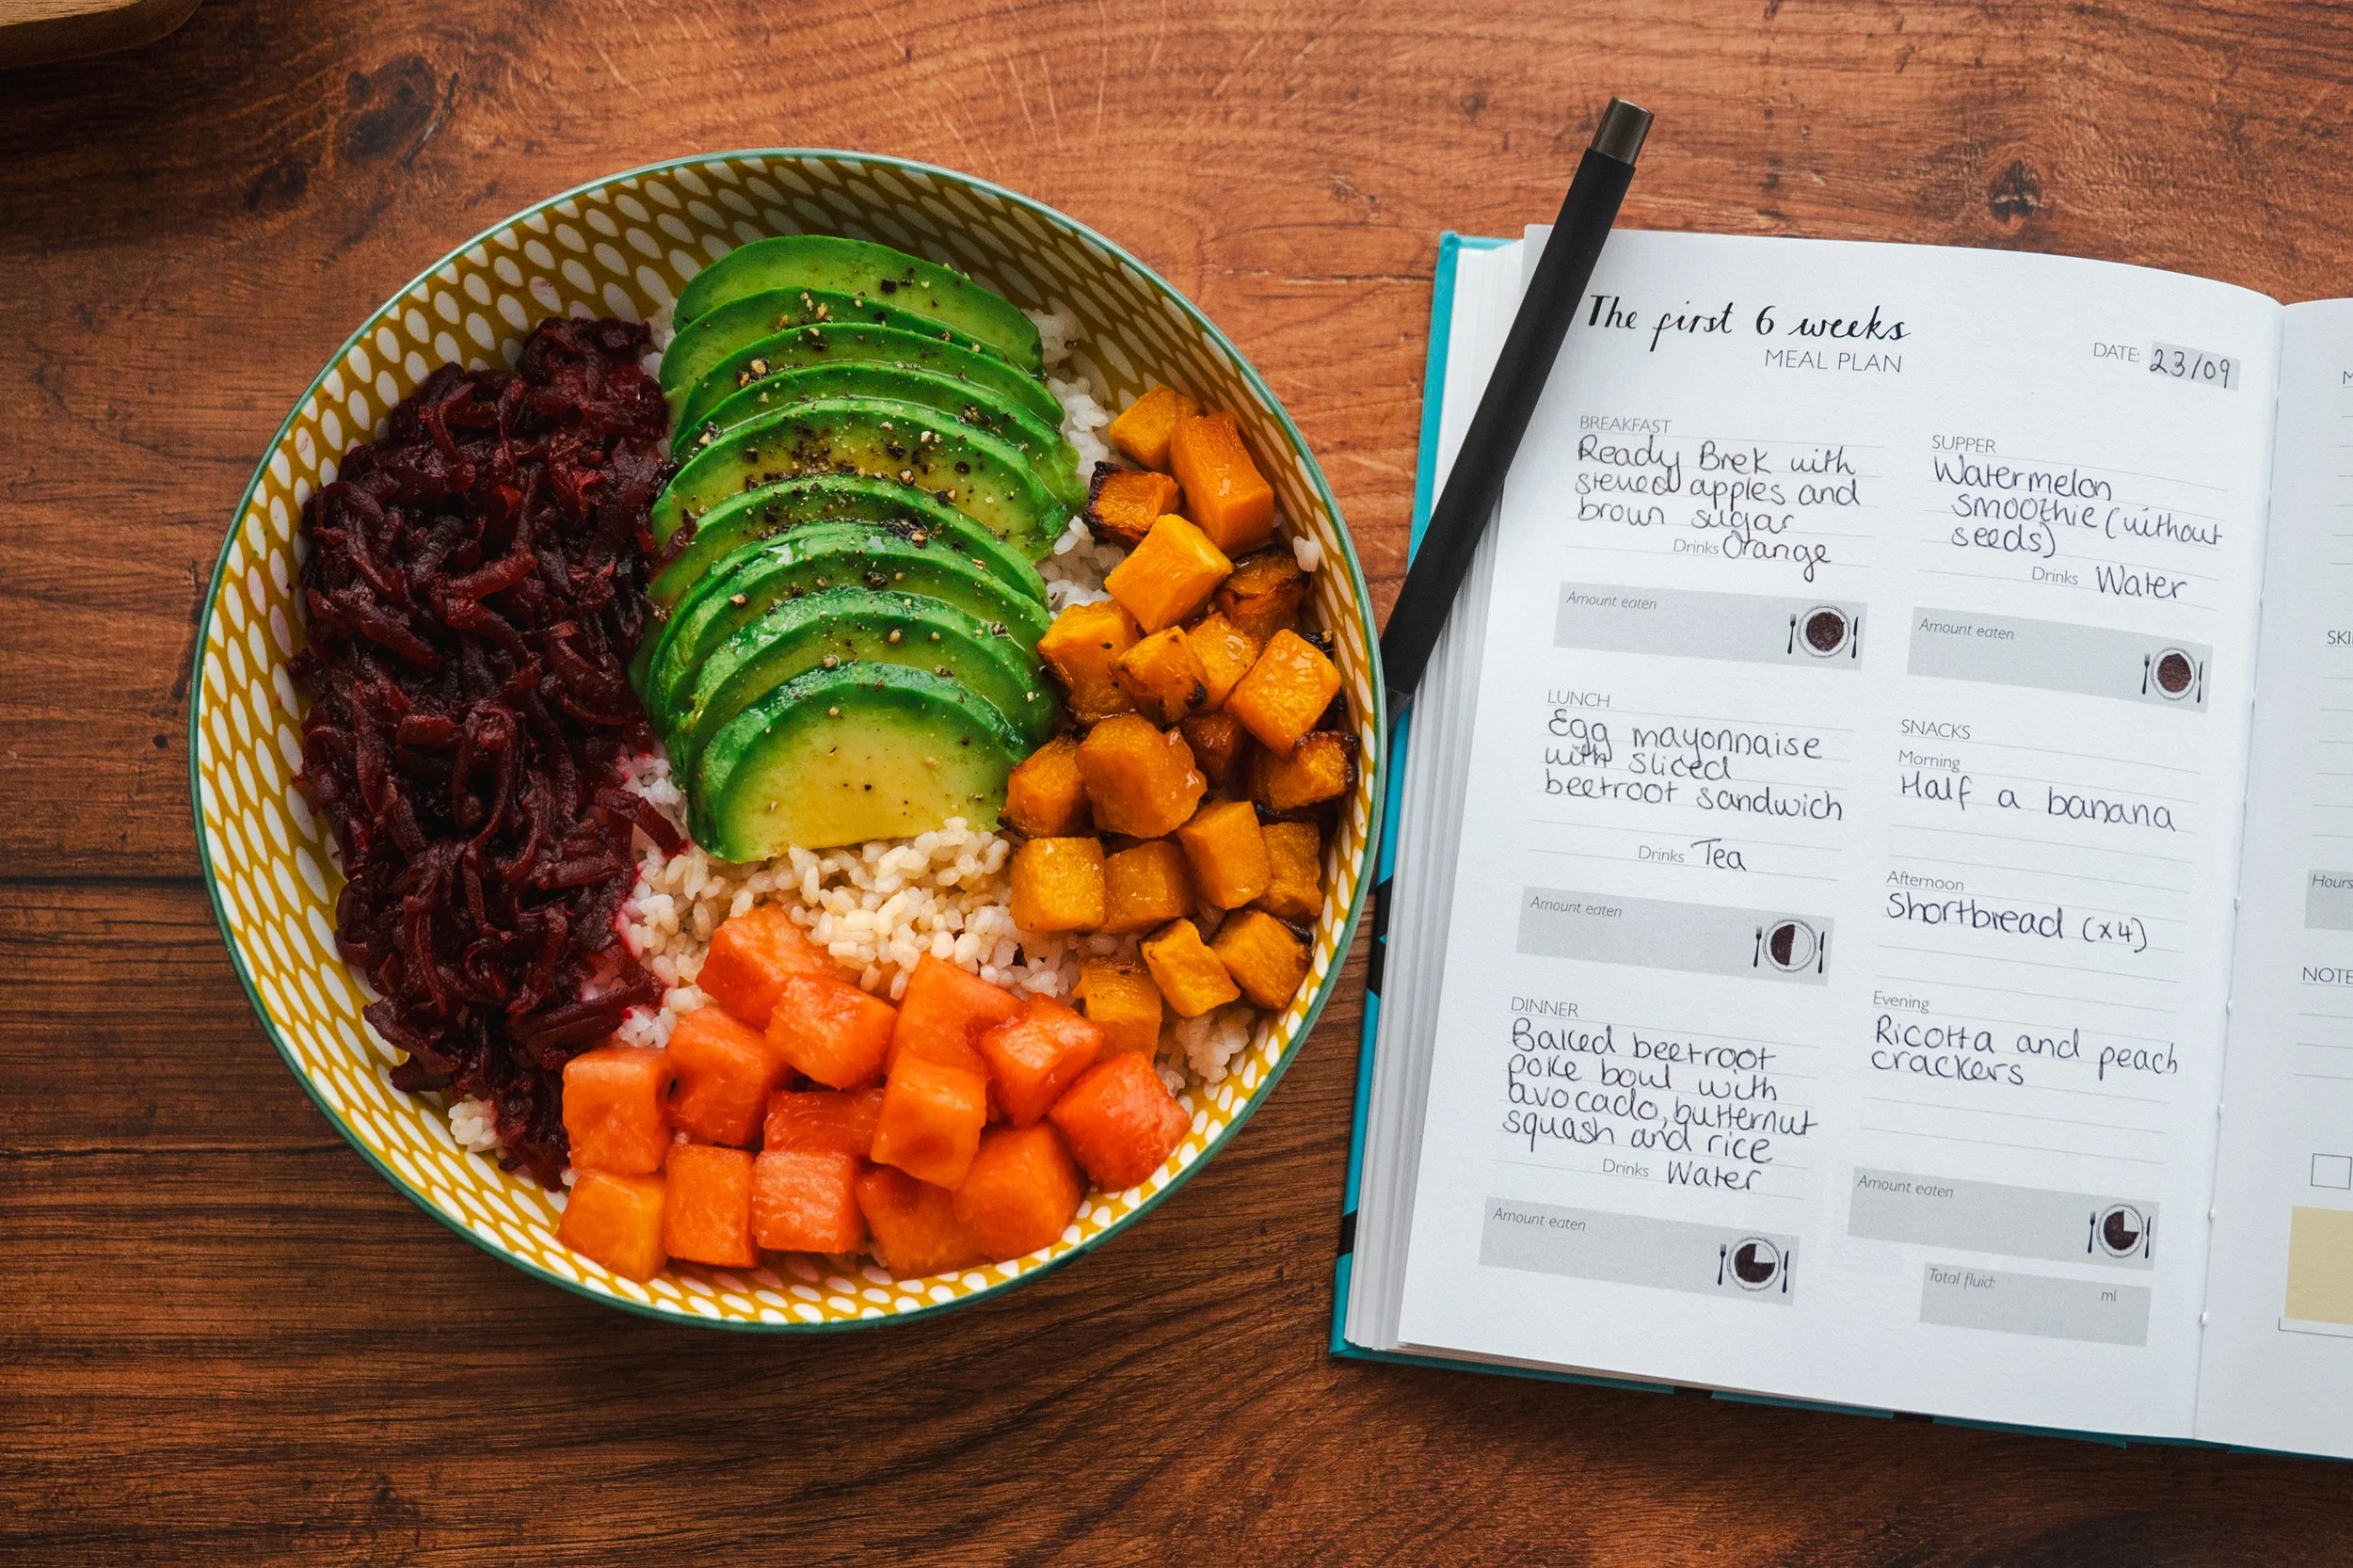 The first 6 weeks
MEAL PLAN
DATE: 23/09
BREAKFAST
Ready Brek with
stewed apples and
brown sugar
Drinks Orange
Amount eaten
LUNCH
Egg mayonnaise
with sliced
beetroot sandwich
Drinks Tea
Amount eaten
DINNER
Baked beetroot
poke bowl with
avocado, butternut
squash and rice
Drinks Water
Amount eaten
SUPPER
Watermelon
smoothie (without
seeds)
Drinks Water
Amount eaten
SNACKS
Morning
Half a banana
Afternoon
Shortbread (x4)
Evening
Ricotta and peach
crackers
Amount eaten
Total fluid:
ml
Hours